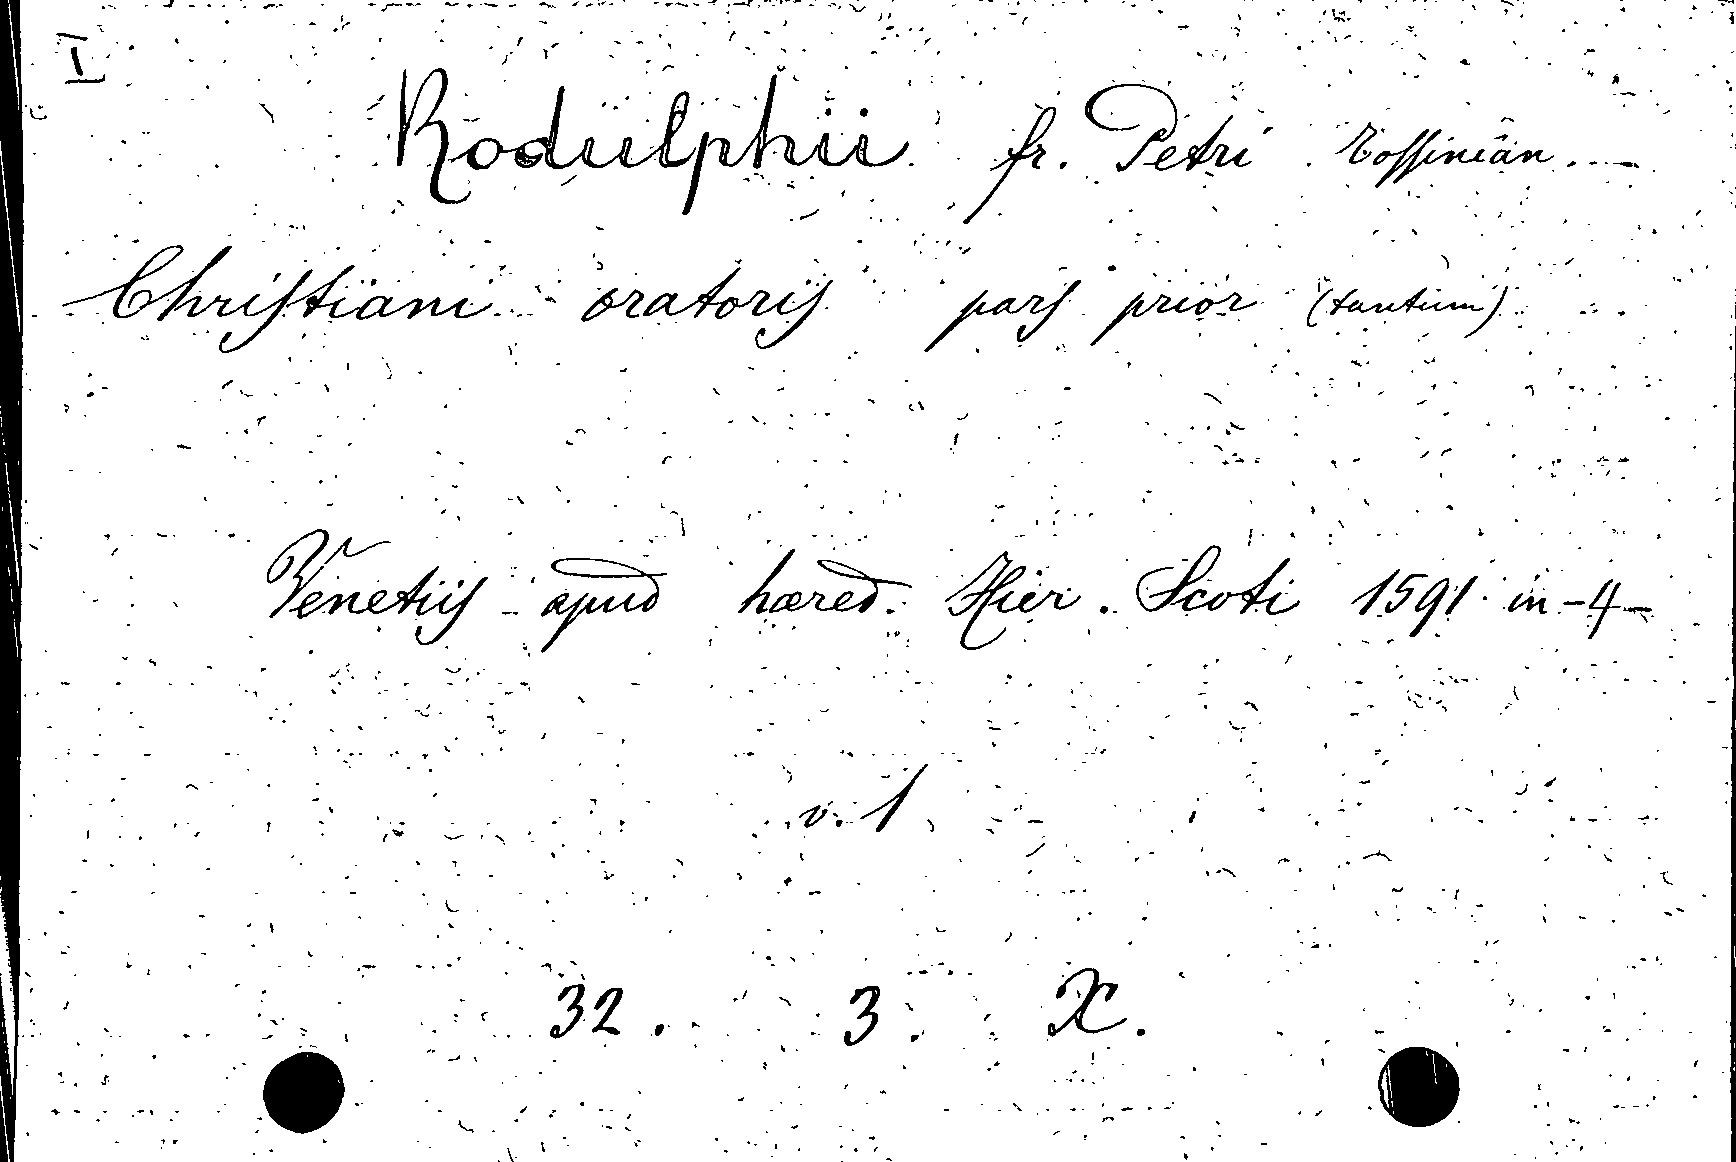 I
Rodulphii fr. Petri Tossinian.
Christiani oratoris pars prior (tantum)
Venetiis apud hæred. Hier. Scoti 1591 in-4-
v. 1
32. 3. X.